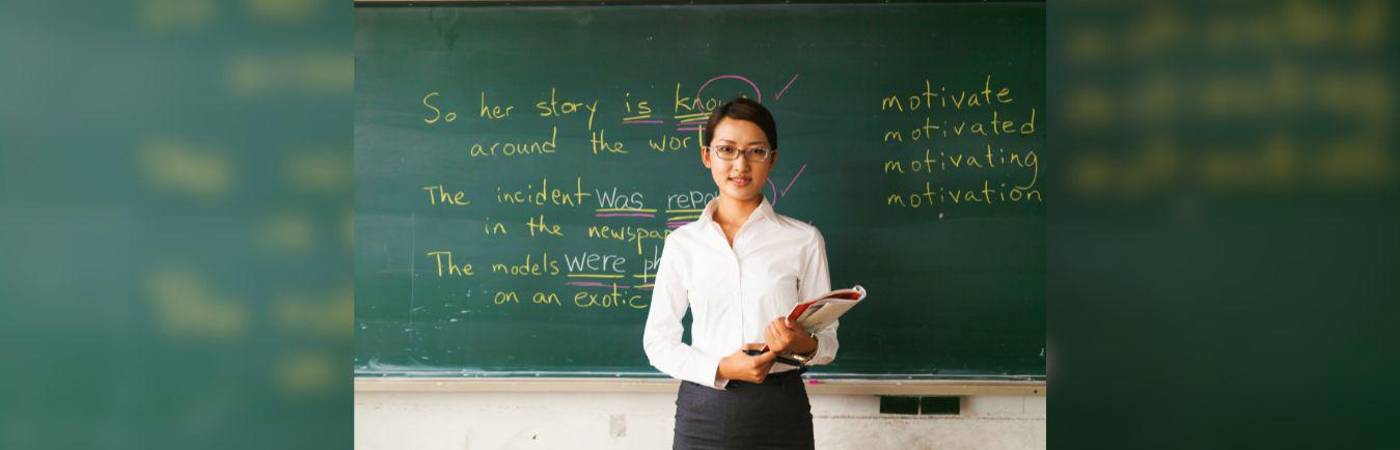 So her story is
around the
The incident Was
in the
The models were
on an exotic
motivate
motivated
motivating
motivation